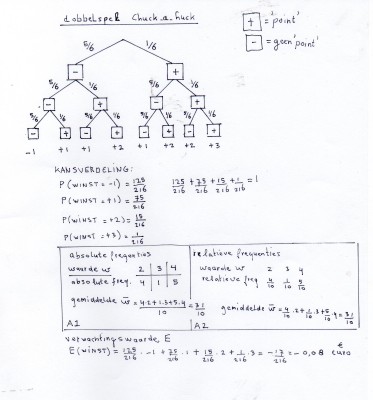 dobbelspel Chuck.a.Luck
5/6 1/6
+ = 'point'
- = 'geen point'
- +
5/6 1/6 5/6 1/6
- + - +
5/6 1/6 5/6 1/6 5/6 1/6 5/6 1/6
- + - + - + - +
-1 +1 +1 +2 +1 +2 +2 +3
KANSVERDELING:
P(WINST = -1) = 125/216 125/216 + 75/216 + 15/216 + 1/216 = 1
P(WINST = +1) = 75/216
P(WINST = +2) = 15/216
P(WINST = +3) = 1/216
absolute frequenties
waarde w 2 3 4
absolute freq. 4 1 5
gemiddelde w̄ = 4·2+1·3+5·4/10 = 31/10
A1
relatieve frequenties
waarde w 2 3 4
relatieve freq 4/10 1/10 5/10
gemiddelde w̄ = 4/10·2+1/10·3+5/10·4=31/10
A2
verwachtingswaarde, E
E(WINST) = 125/216 · -1 + 75/216 · 1 + 15/216 · 2 + 1/216 · 3 = -17/216 = -0,08 € euro